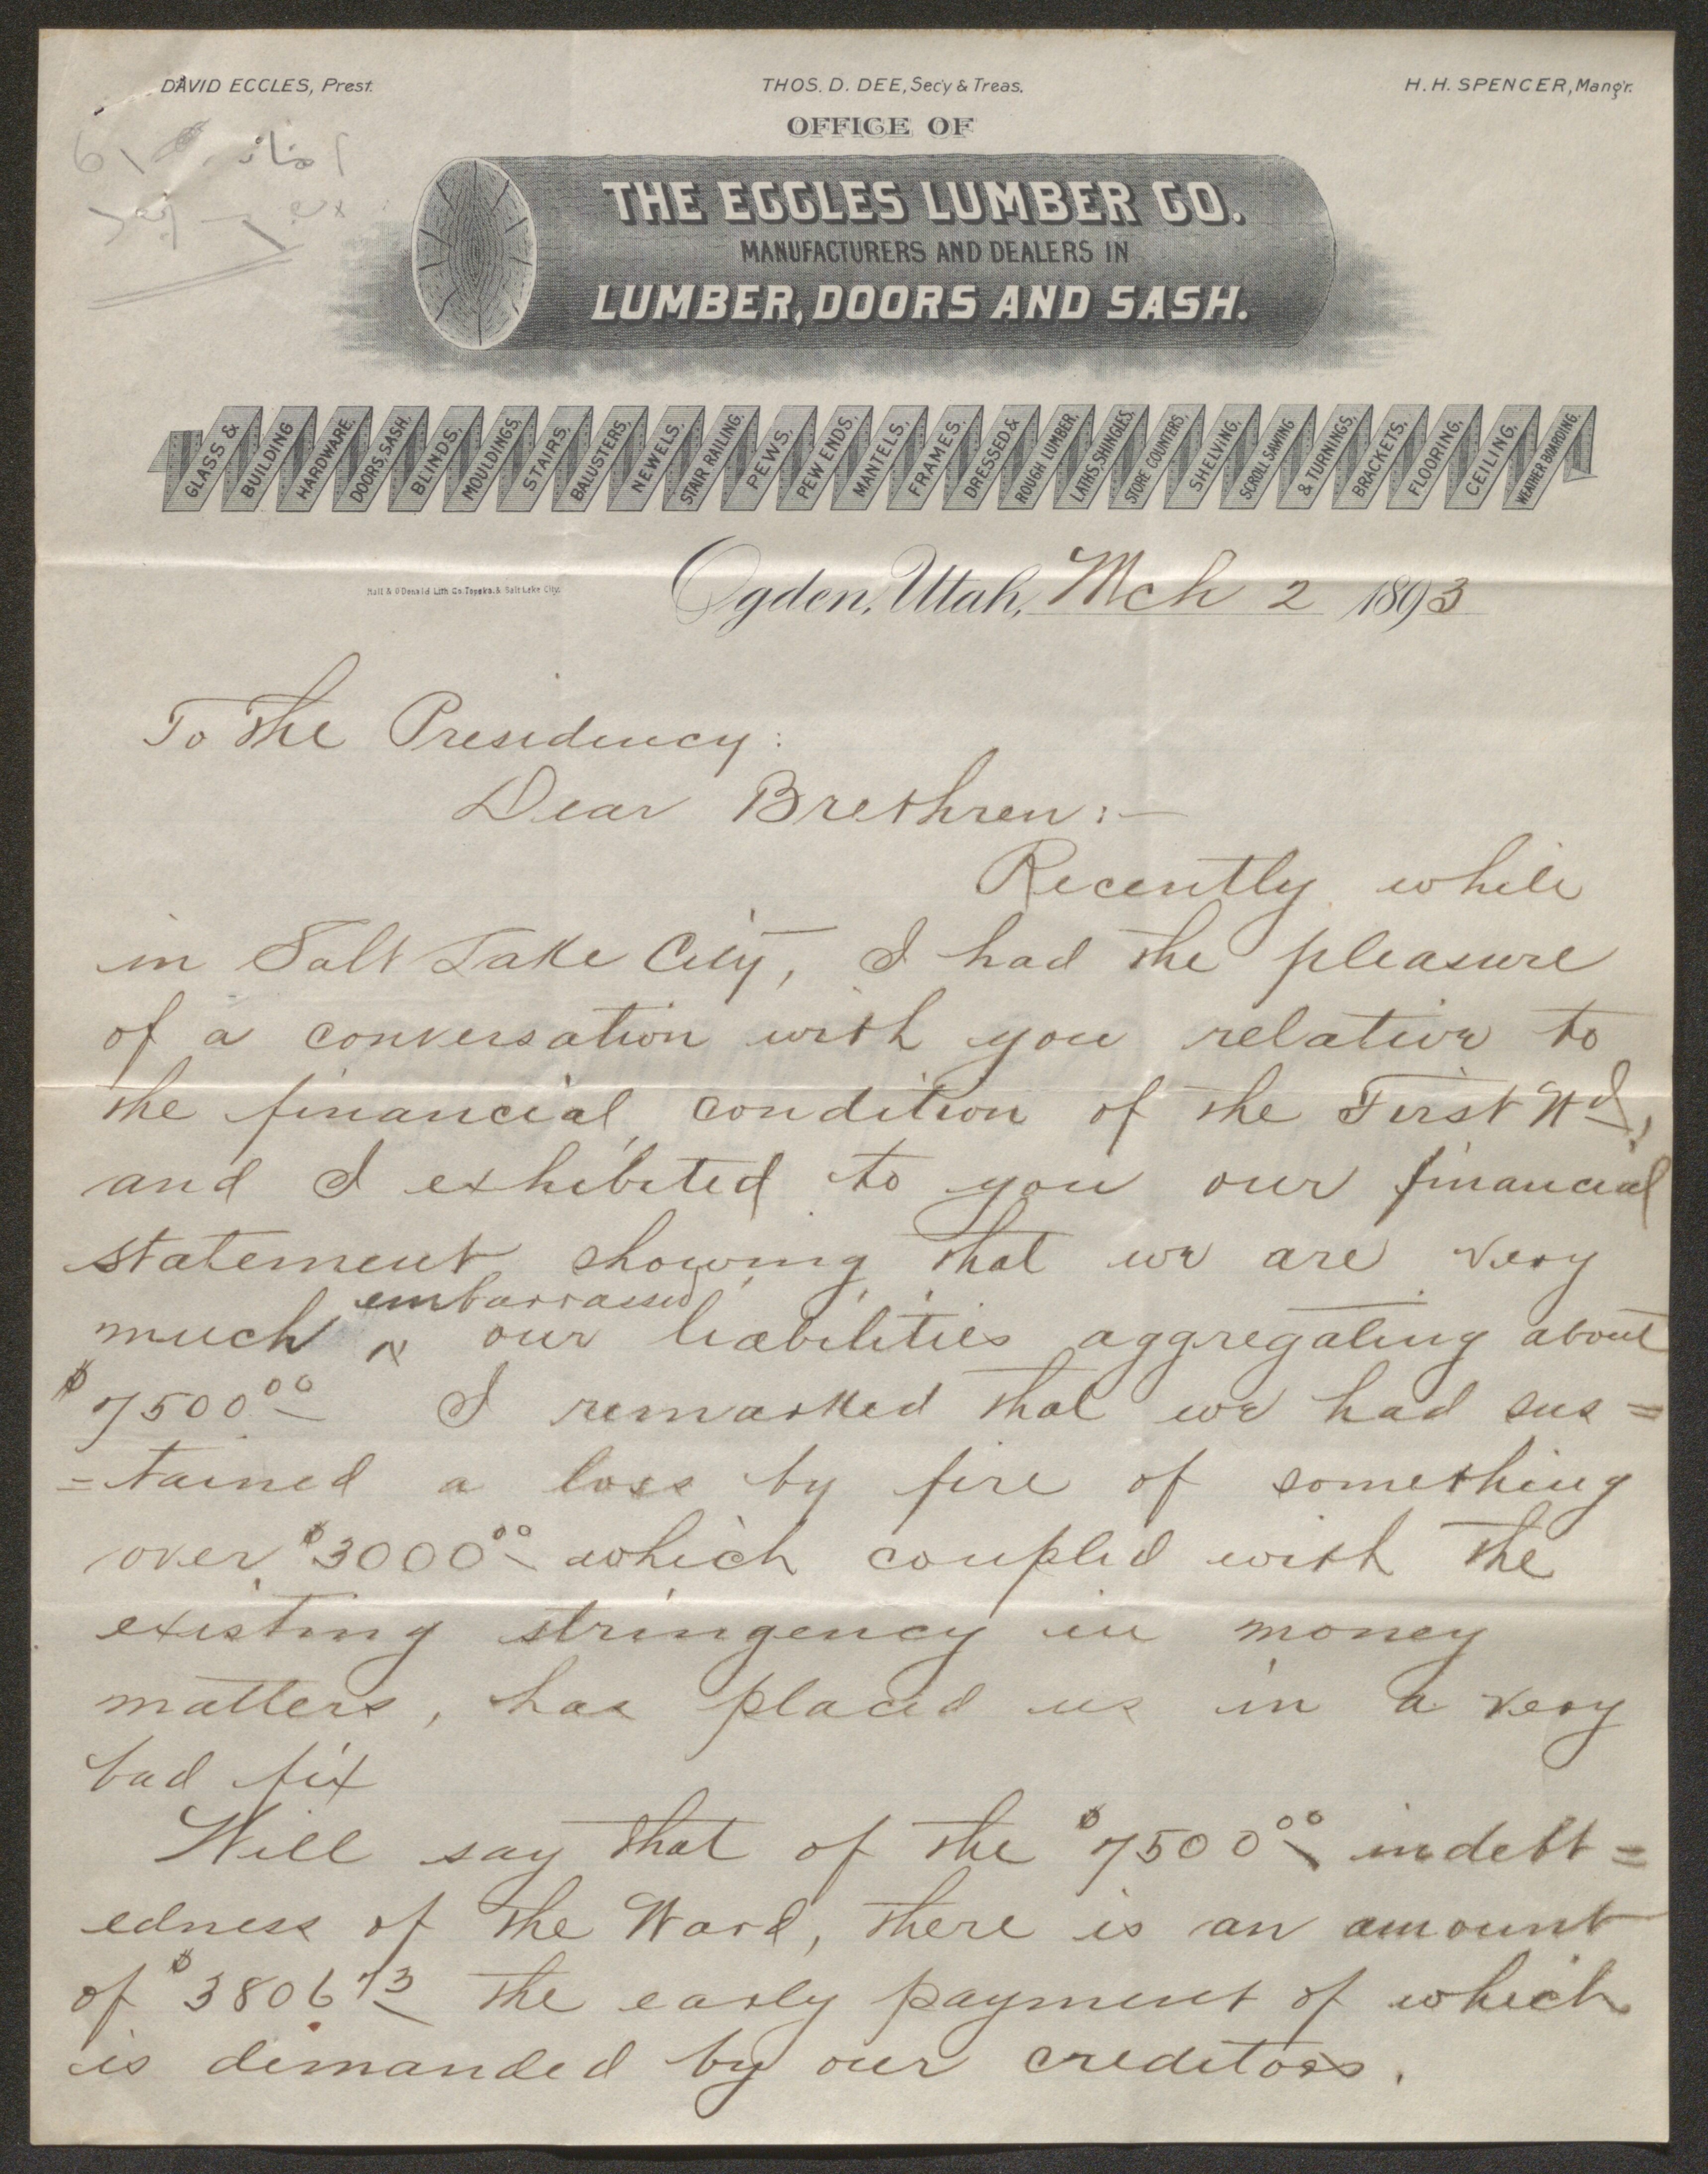 DAVID ECCLES, Prest. THOS. D. DEE, Sec'y & Treas. H. H. SPENCER, Mang'r.
OFFICE OF
THE ECCLES LUMBER CO.
MANUFACTURERS AND DEALERS IN
LUMBER, DOORS AND SASH.
GLASS & BUILDING HARDWARE, DOORS, SASH, BLINDS, MOULDINGS, STAIRS, BALUSTERS, NEWELS, STAIR RAILING, PEWS, PEW ENDS, MANTELS, FRAMES, DRESSED & ROUGH LUMBER, LATHS, SHINGLES, STORE COUNTERS, SHELVING, SCROLL SAWING & TURNINGS, BRACKETS, FLOORING, CEILING, WEATHER BOARDING.
Ogden, Utah, Mch 2 1893
Hall & O'Donald Lith Co. Topeka & Salt Lake City.
To The Presidency:
Dear Brethren:—
Recently while
in Salt Lake City, I had the pleasure
of a conversation with you relative to
the financial condition of the First Wd,
and I exhibited to you our financial
statement showing that we are very
much embarrassed our liabilities aggregating about
$7500.00 I remarked that we had sus=
=tained a loss by fire of something
over $3000.00 which coupled with the
existing stringency in money
matters, has placed us in a very
bad fix
Will say that of the $7500.00 indebt=
edness of the Ward, there is an amount
of $3806 73 the early payment of which
is demanded by our creditors.